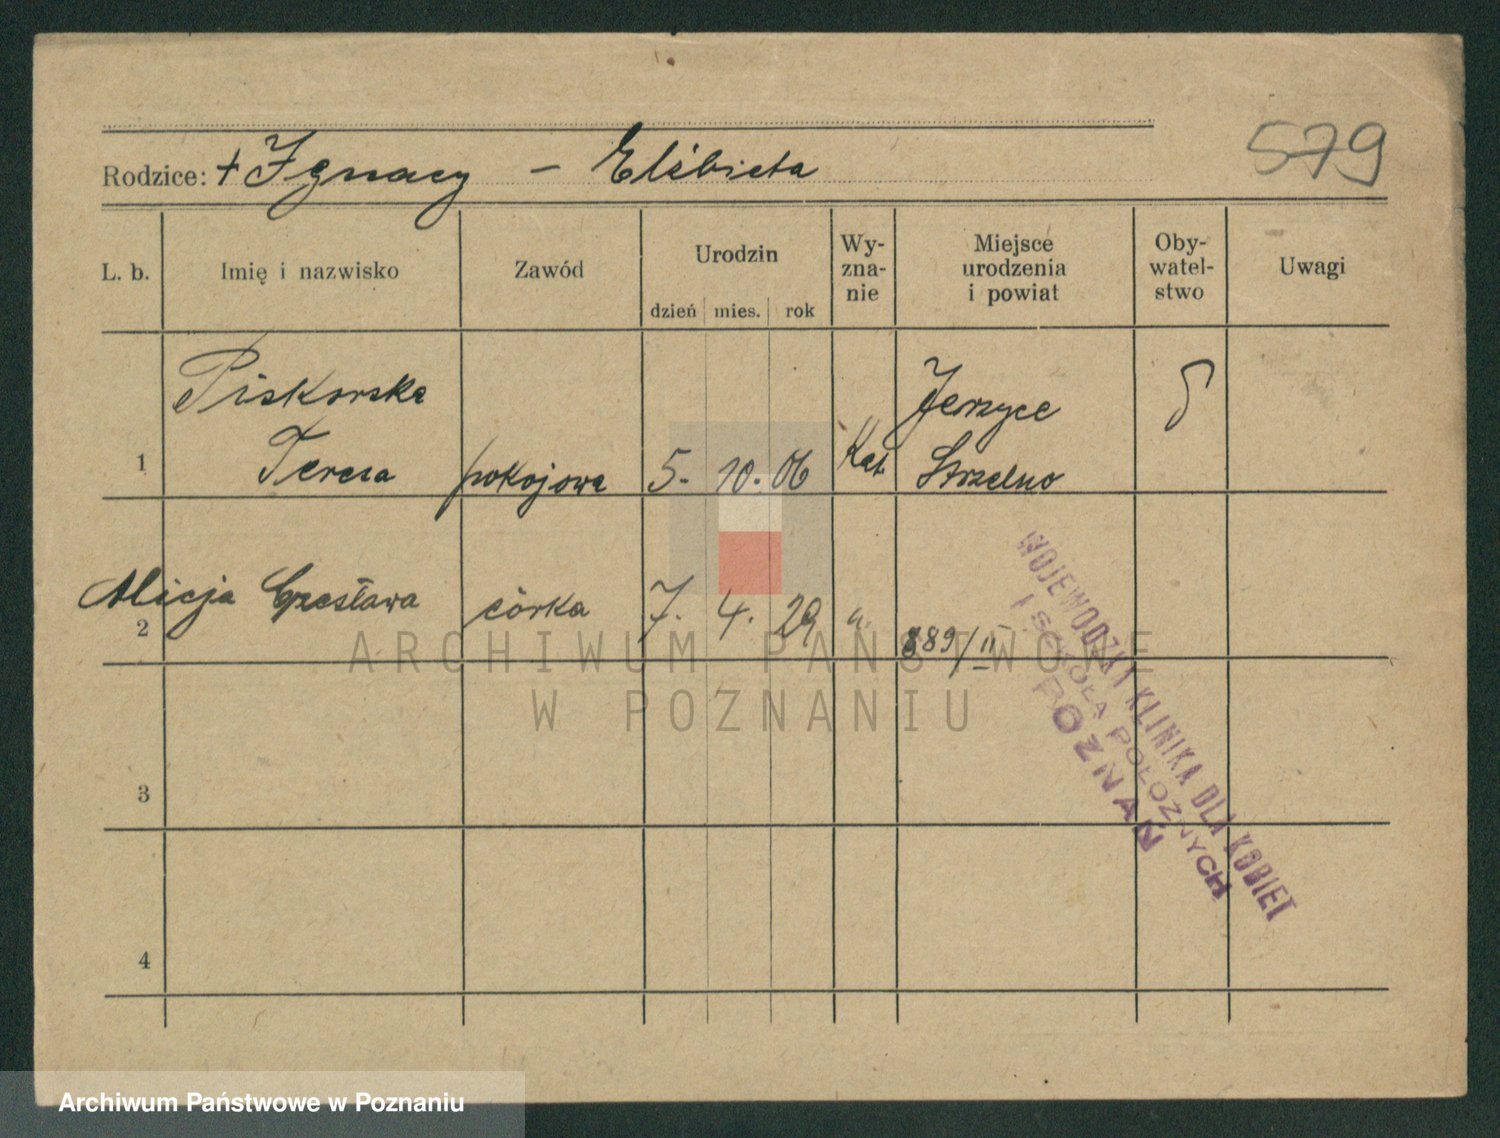 579
Rodzice: + Ignacy - Elżbieta
L. b. Imię i nazwisko Zawód Urodzin Wy-
zna-
nie Miejsce
urodzenia
i powiat Oby-
watel-
stwo Uwagi
dzień mies. rok
Piskorska Jerzyce
1 Teresa pokojowa 5. 10. 06 Kat. Strzelno
2 Alicja Czesława córka 7. 4. 29 " 889/II
3
4
WOJEWÓDZKA KLINIKA DLA KOBIET
I SZKOŁA POŁOŻNYCH
POZNAŃ
ARCHIWUM PAŃSTWOWE
W POZNANIU
Archiwum Państwowe w Poznaniu